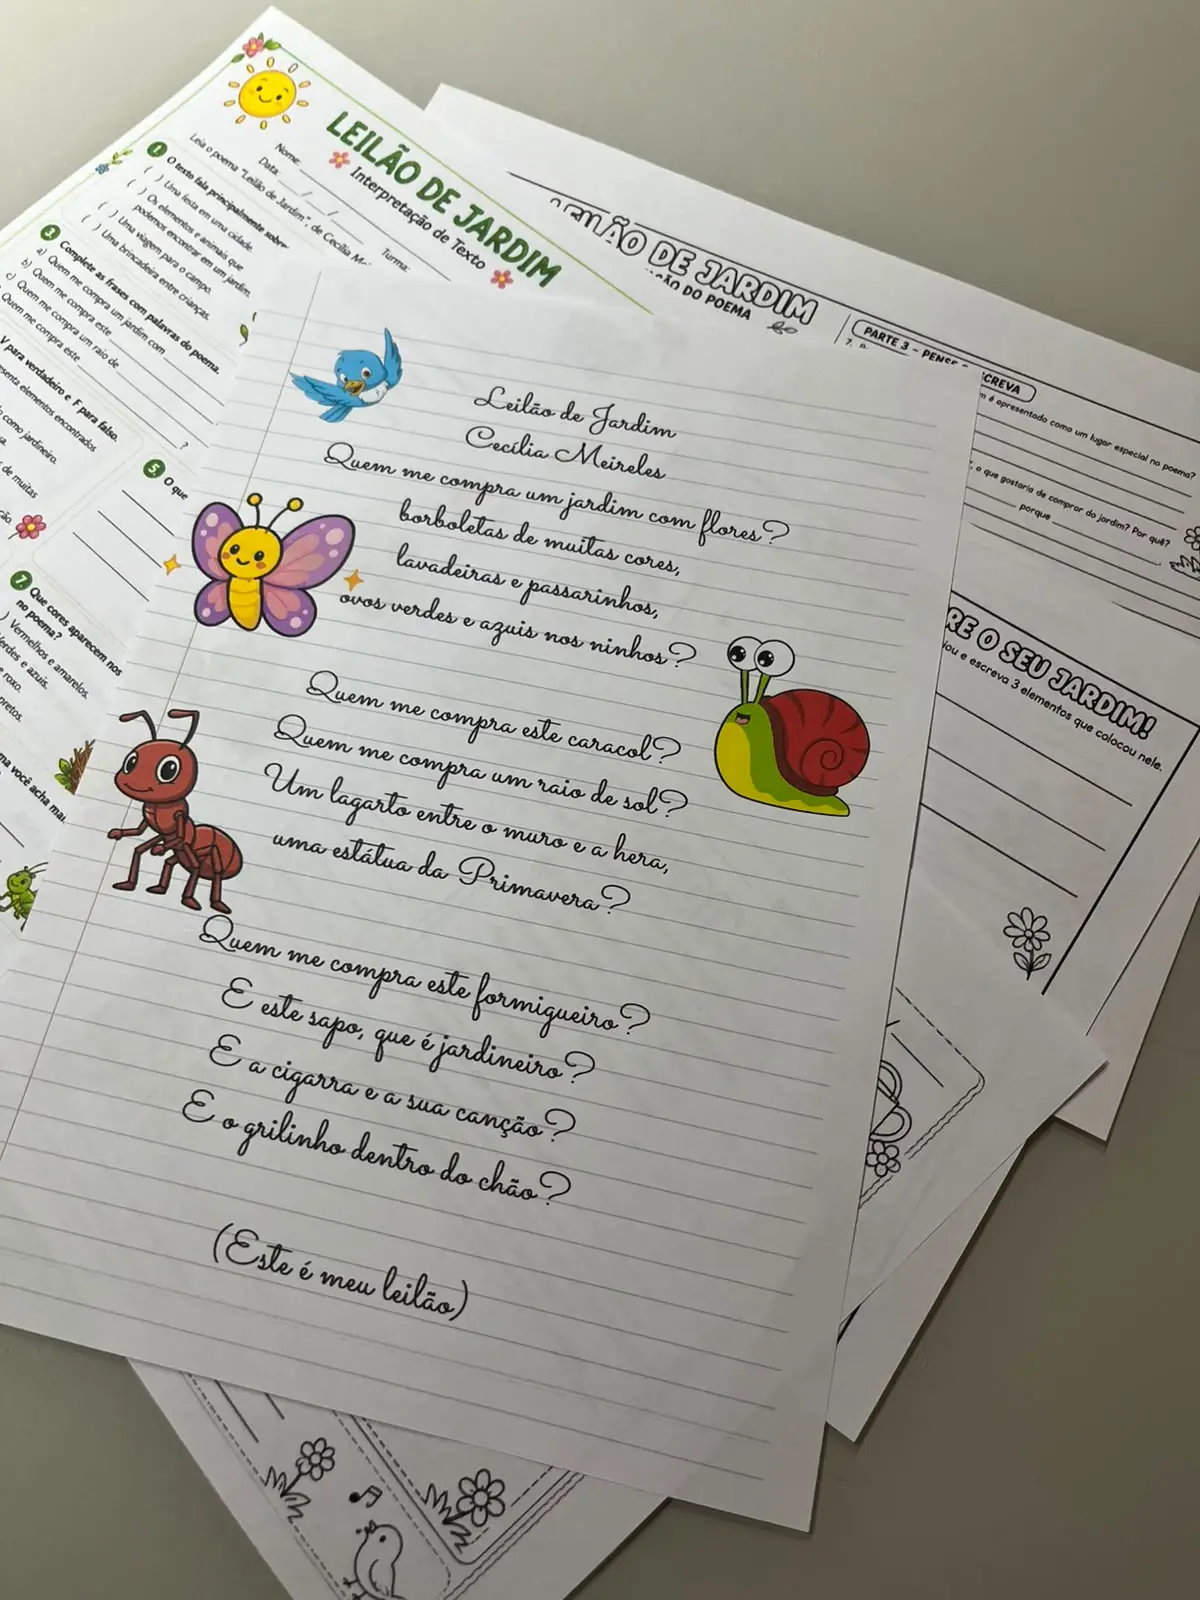 Leilão de Jardim
Cecília Meireles
Quem me compra um jardim com flores?
borboletas de muitas cores,
lavadeiras e passarinhos,
ovos verdes e azuis nos ninhos?
Quem me compra este caracol?
Quem me compra um raio de sol?
Um lagarto entre o muro e a hera,
uma estátua da Primavera?
Quem me compra este formigueiro?
E este sapo, que é jardineiro?
E a cigarra e a sua canção?
E o grilinho dentro do chão?
(Este é meu leilão)
LEILÃO DE JARDIM
Interpretação de Texto
Nome:
Data: / /
Turma:
Leia o poema "Leilão de Jardim", de Cecília
1. O texto fala principalmente sobre
( ) Uma festa em uma cidade.
( ) Os elementos e animais que
podemos encontrar em um jardim.
( ) Uma viagem para o campo.
( ) Uma brincadeira entre crianças.
3. Complete as frases com palavras do poema.
a) Quem me compra um jardim com
b) Quem me compra este
c) Quem me compra um raio de
Quem me compra este ?
V para verdadeiro e F para falso.
elementos encontrados
como jardineiro.
de muitas
5. O que
7. Que cores aparecem nos
no poema?
) Vermelhos e amarelos.
e azuis.
roxo.
pretos.
você acha
LEILÃO DE JARDIM
DO POEMA
PARTE 3 - PENSE
é apresentado como um lugar especial no poema?
, o que gostaria de comprar do jardim? Por quê?
porque
O SEU JARDIM!
e escreva 3 elementos que colocou nele.